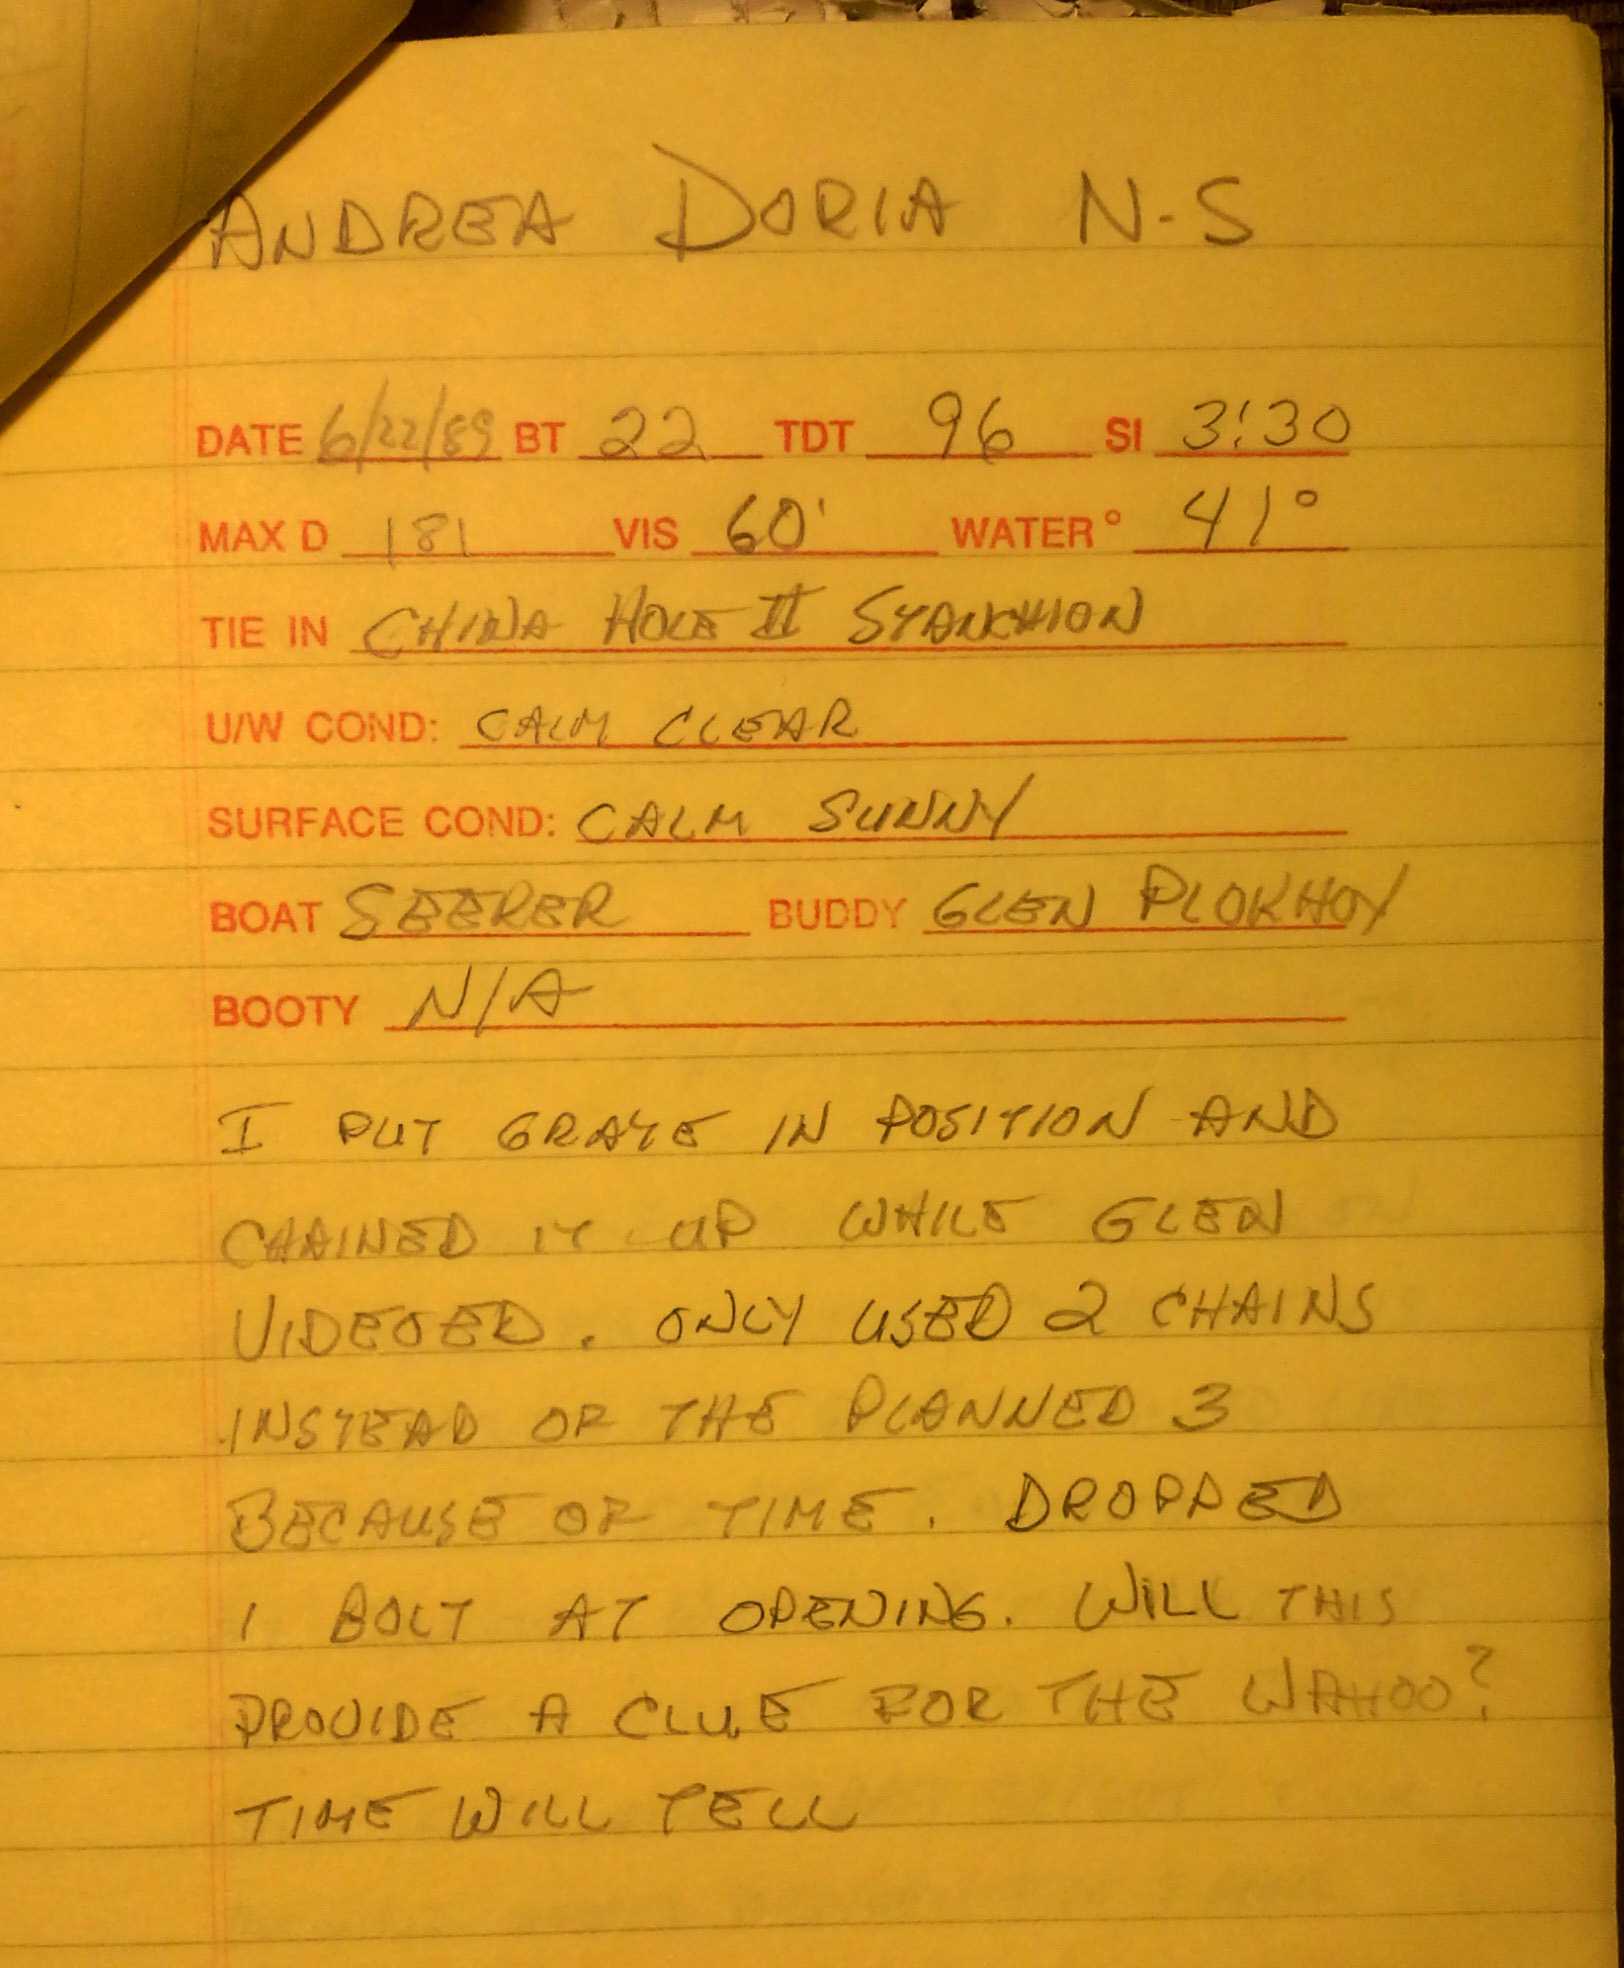 ANDREA DORIA N-S
DATE 6/22/89 BT 22 TDT 96 SI 3:30
MAX D 181 VIS 60' WATER° 41°
TIE IN CHINA HOLE II STANCHION
U/W COND: CALM CLEAR
SURFACE COND: CALM SUNNY
BOAT SEEKER BUDDY GLEN PLOKHOY
BOOTY N/A
I PUT GRATE IN POSITION AND
CHAINED IT UP WHILE GLEN
VIDEOED. ONLY USED 2 CHAINS
INSTEAD OF THE PLANNED 3
BECAUSE OF TIME. DROPPED
1 BOLT AT OPENING. WILL THIS
PROVIDE A CLUE FOR THE WAHOO?
TIME WILL TELL